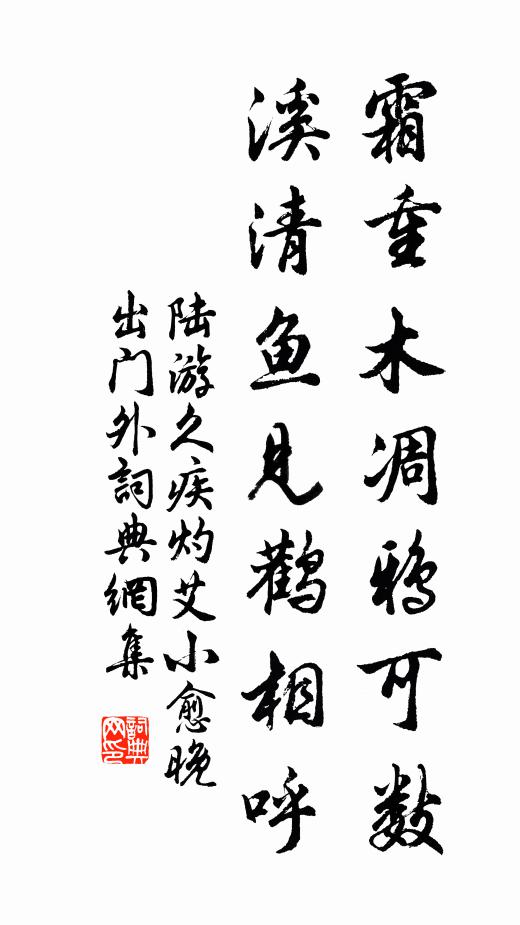 霜重木凋鸦可数
溪清鱼见鹳相呼
陆游久疾灼艾小愈晚
出门外詞典網集
詞典网印